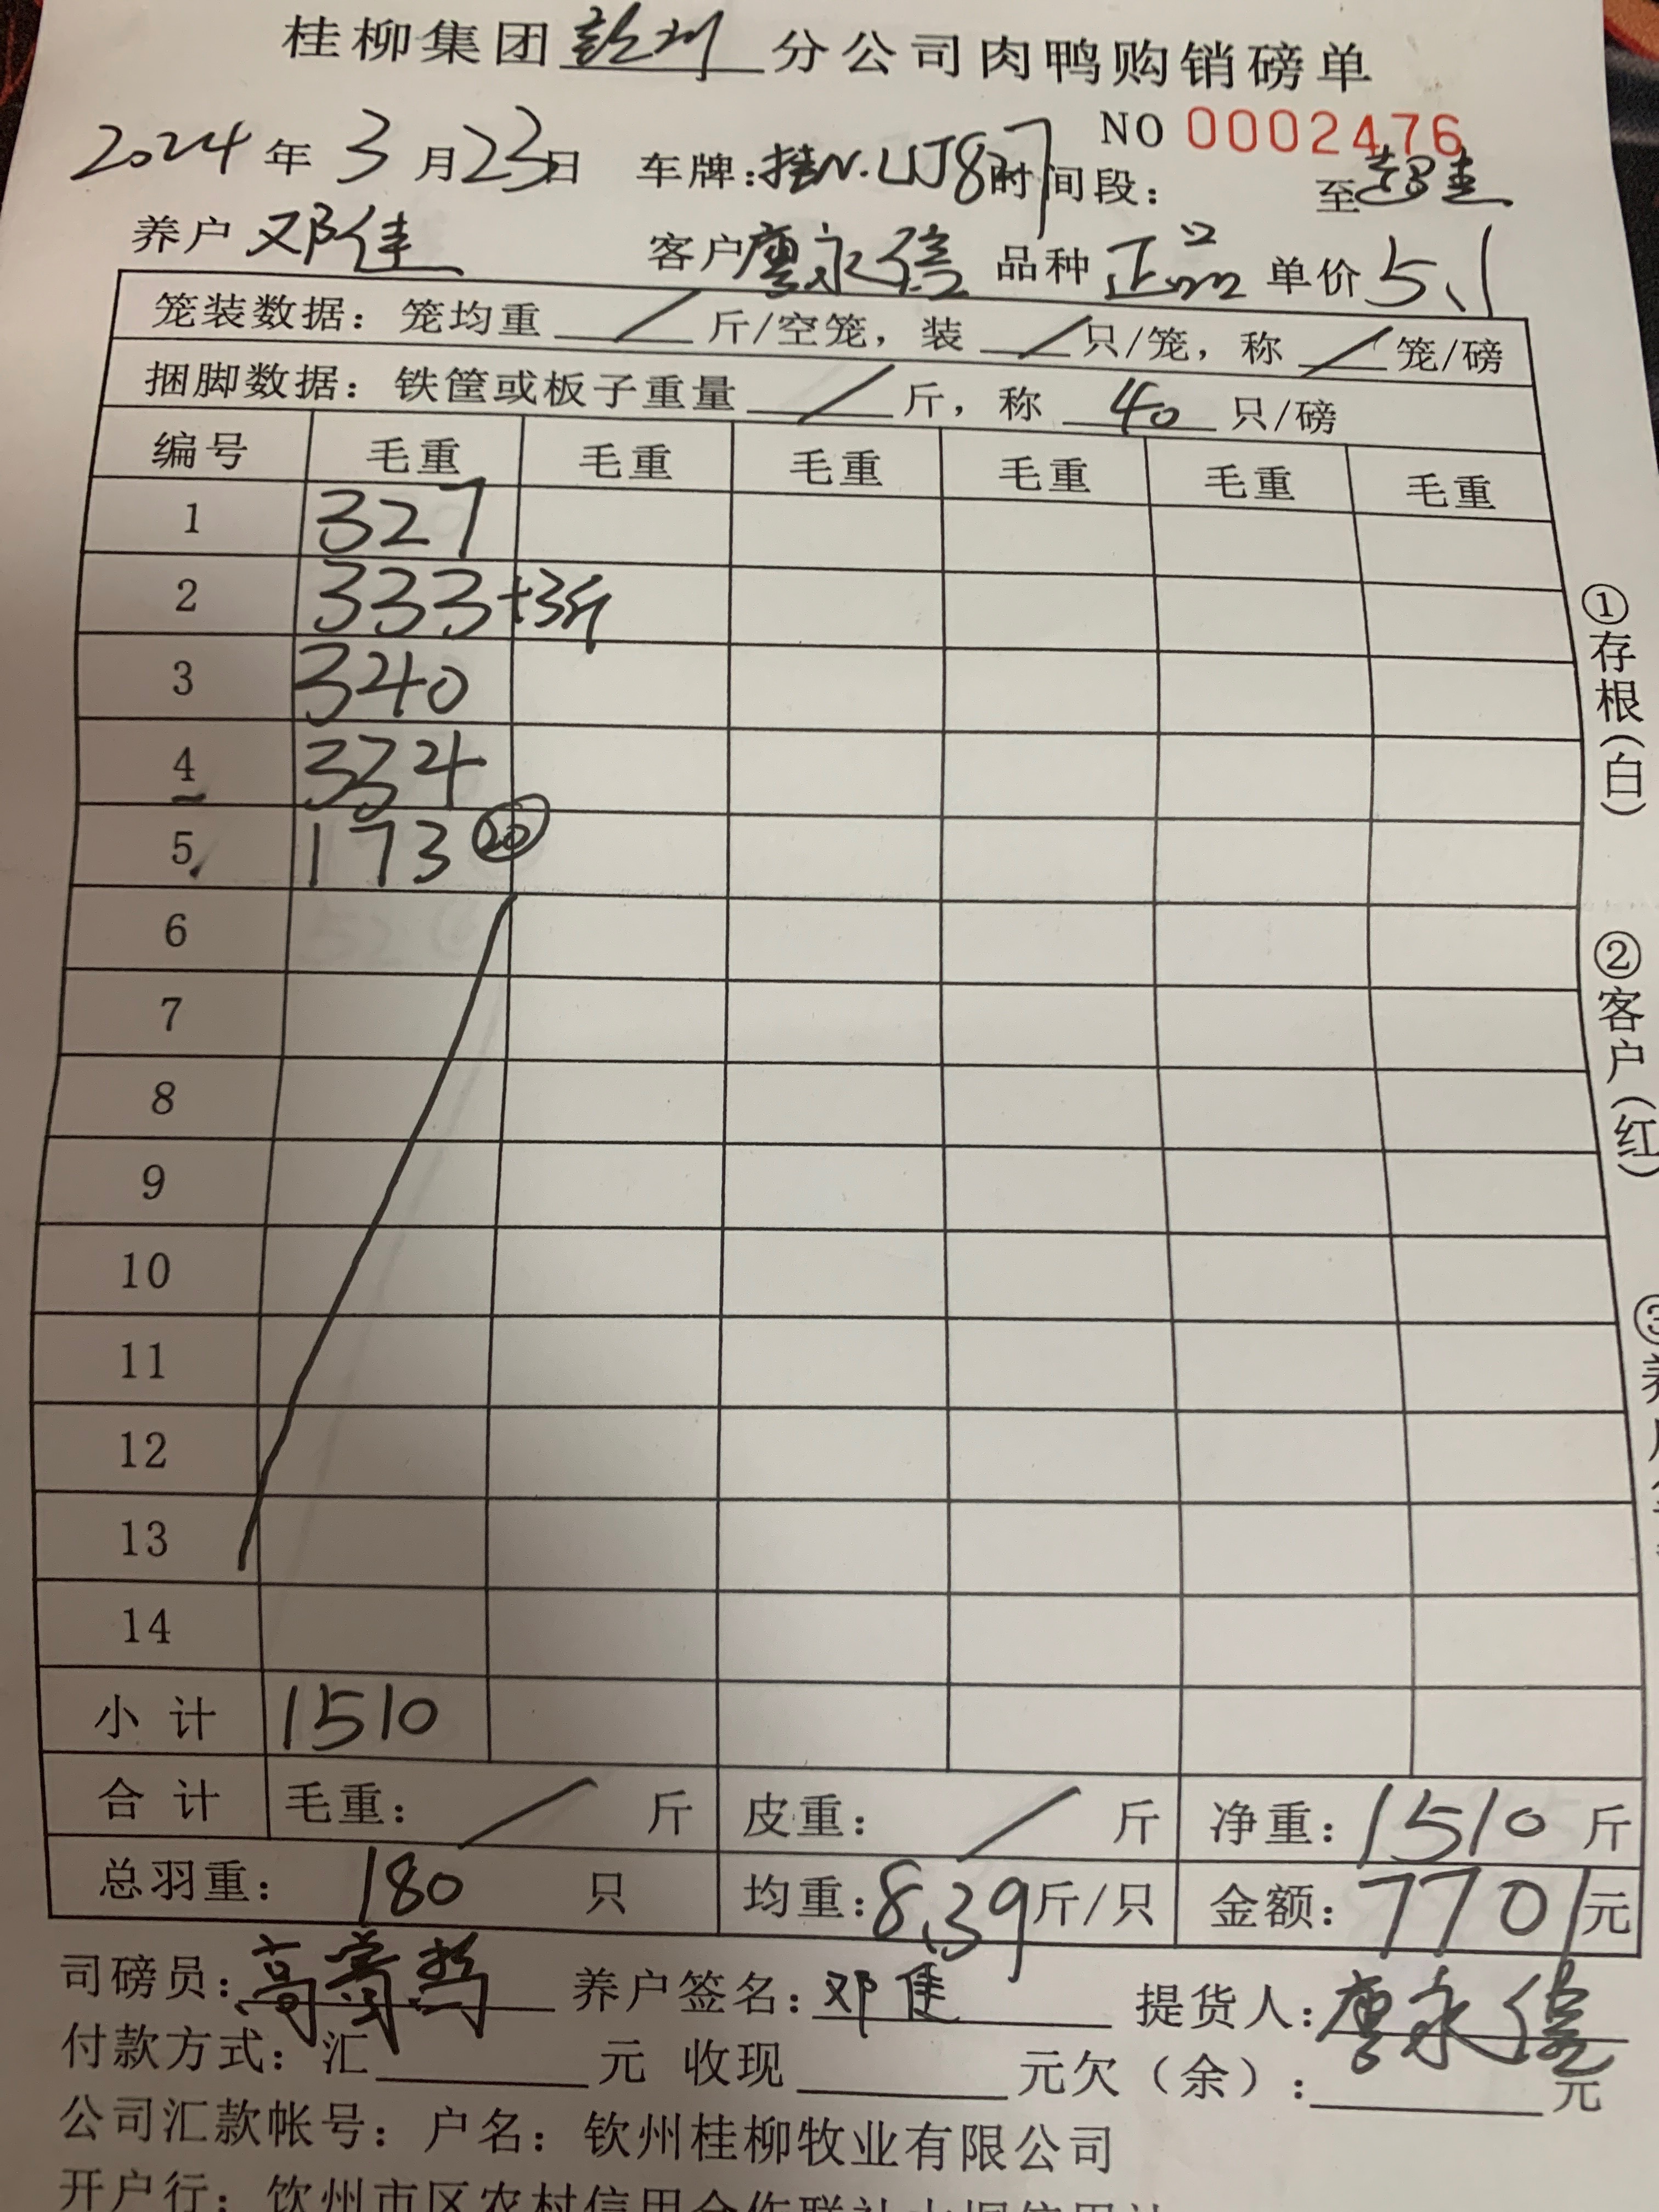 桂柳集团钦州分公司肉鸭购销磅单
NO 0002476
2024年3月23日 车牌:桂N.LJ827 时间段: 至
养户 邓佳 客户 廖永 品种 正品 单价 5.1
笼装数据: 笼均重 / 斤/空笼, 装 / 只/笼, 称 / 笼/磅
捆脚数据: 铁筐或板子重量 / 斤, 称 40 只/磅
编号 毛重 毛重 毛重 毛重 毛重 毛重
1 327
2 333+3斤
3 340
4 334
5 173 20
6
7
8
9
10
11
12
13
14
小计 1510
合计 毛重: / 斤 皮重: / 斤 净重: 1510 斤
总羽重: 180 只 均重: 8.39 斤/只 金额: 7701 元
司磅员: 高 养户签名: 邓佳 提货人: 廖永
付款方式: 汇 元 收现 元欠(余): 元
公司汇款帐号: 户名: 钦州桂柳牧业有限公司
开户行: 钦州市区农村信用合作联社
①存根(白)
②客户(红)
③养